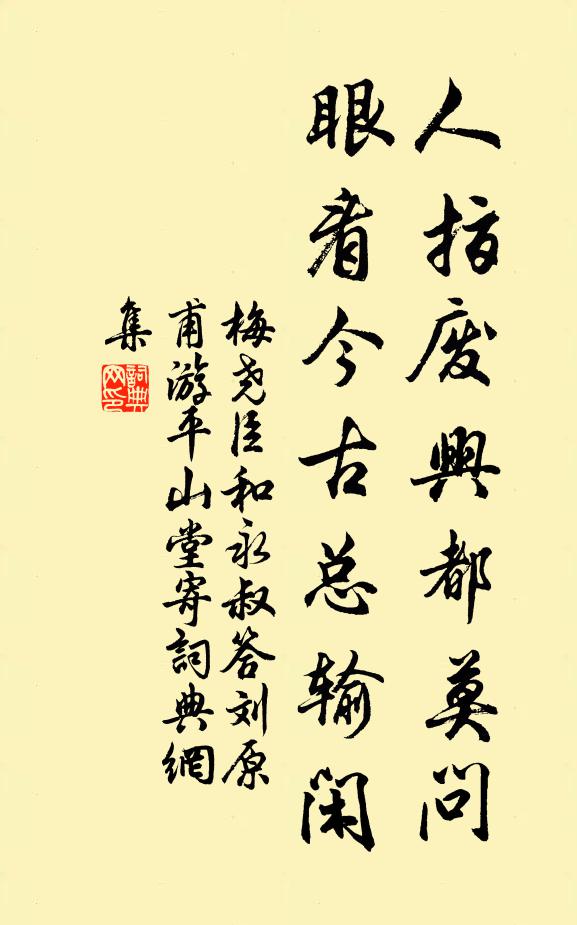 人指废興都莫问
眼看今古总输闲
梅尧臣和永叔答刘原
甫游平山堂寄詞典網
集
詞典网印